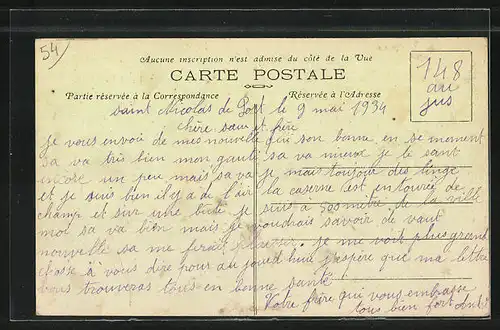 54
Aucune inscription n'est admise du côté de la Vue
CARTE POSTALE
Partie réservée à la Correspondance
Réservée à l'Adresse
148
au
jus
Saint Nicolas de Port le 9 mai 1934
chère sœur et frère
je vous envoi de mes nouvelle qui son bonne en se moment
sa va très bien mon sa va mieux je le sant
encore un peu mais sa va je mais toujour des linge
et je suis bien il y a de l'air la caserne est entourée de
champ et sur une bute je suis à 500 metre de la ville
moi sa va bien mais je voudrais savoir de vaut
nouvelle sa me ferait plaisir. je ne voit plus grant
chose à vous dire pour au jourd'hui j'espère que ma lettre
vous trouveras tous en bonne santé
Votre frère qui vous embrasse
tous bien fort